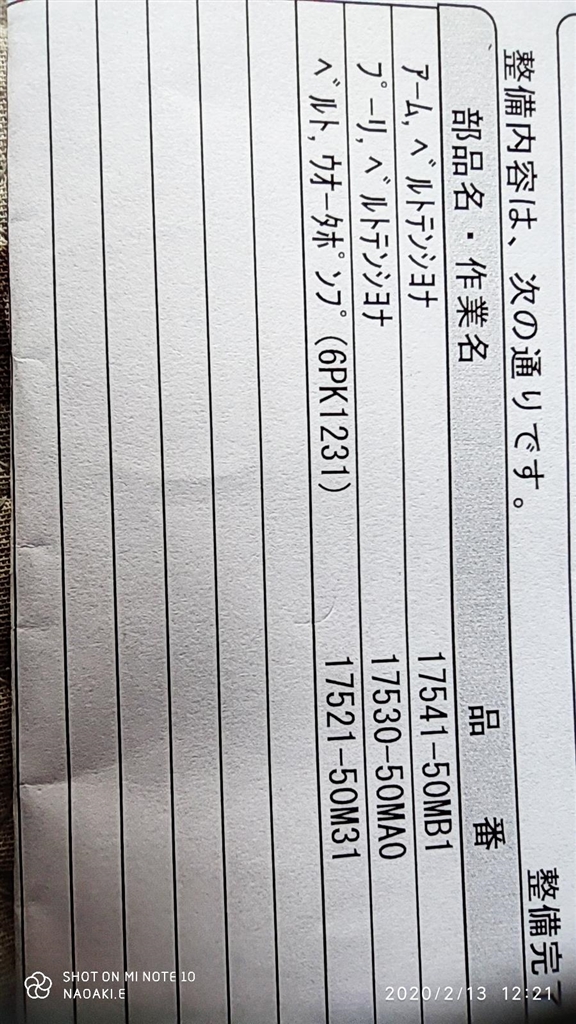 整備内容は、次の通りです。
整備完
部品名・作業名
品番
ｱｰﾑ,ﾍﾞﾙﾄﾃﾝｼﾖﾅ
17541-50MB1
ﾌﾟｰﾘ,ﾍﾞﾙﾄﾃﾝｼﾖﾅ
17530-50MA0
ﾍﾞﾙﾄ,ｳｵｰﾀﾎﾟﾝﾌﾟ(6PK1231)
17521-50M31
SHOT ON MI NOTE 10
NAOAKI.E
2020/2/13 12:21